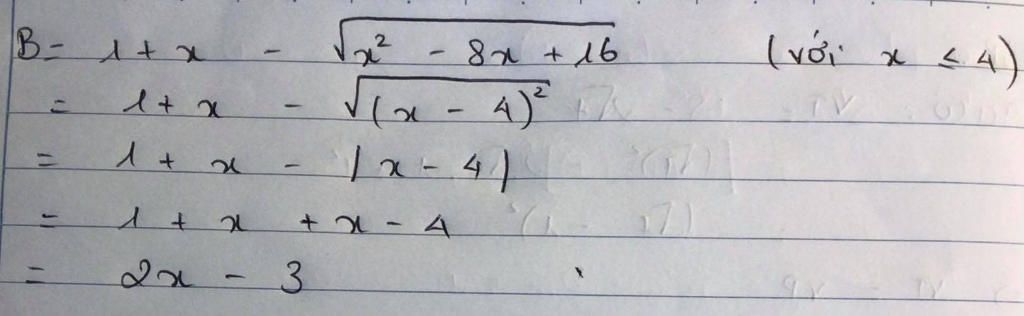 B = 1 + x - √(x² - 8x + 16) (với x ≤ 4)
= 1 + x - √((x - 4)²)
= 1 + x - |x - 4|
= 1 + x + x - 4
= 2x - 3